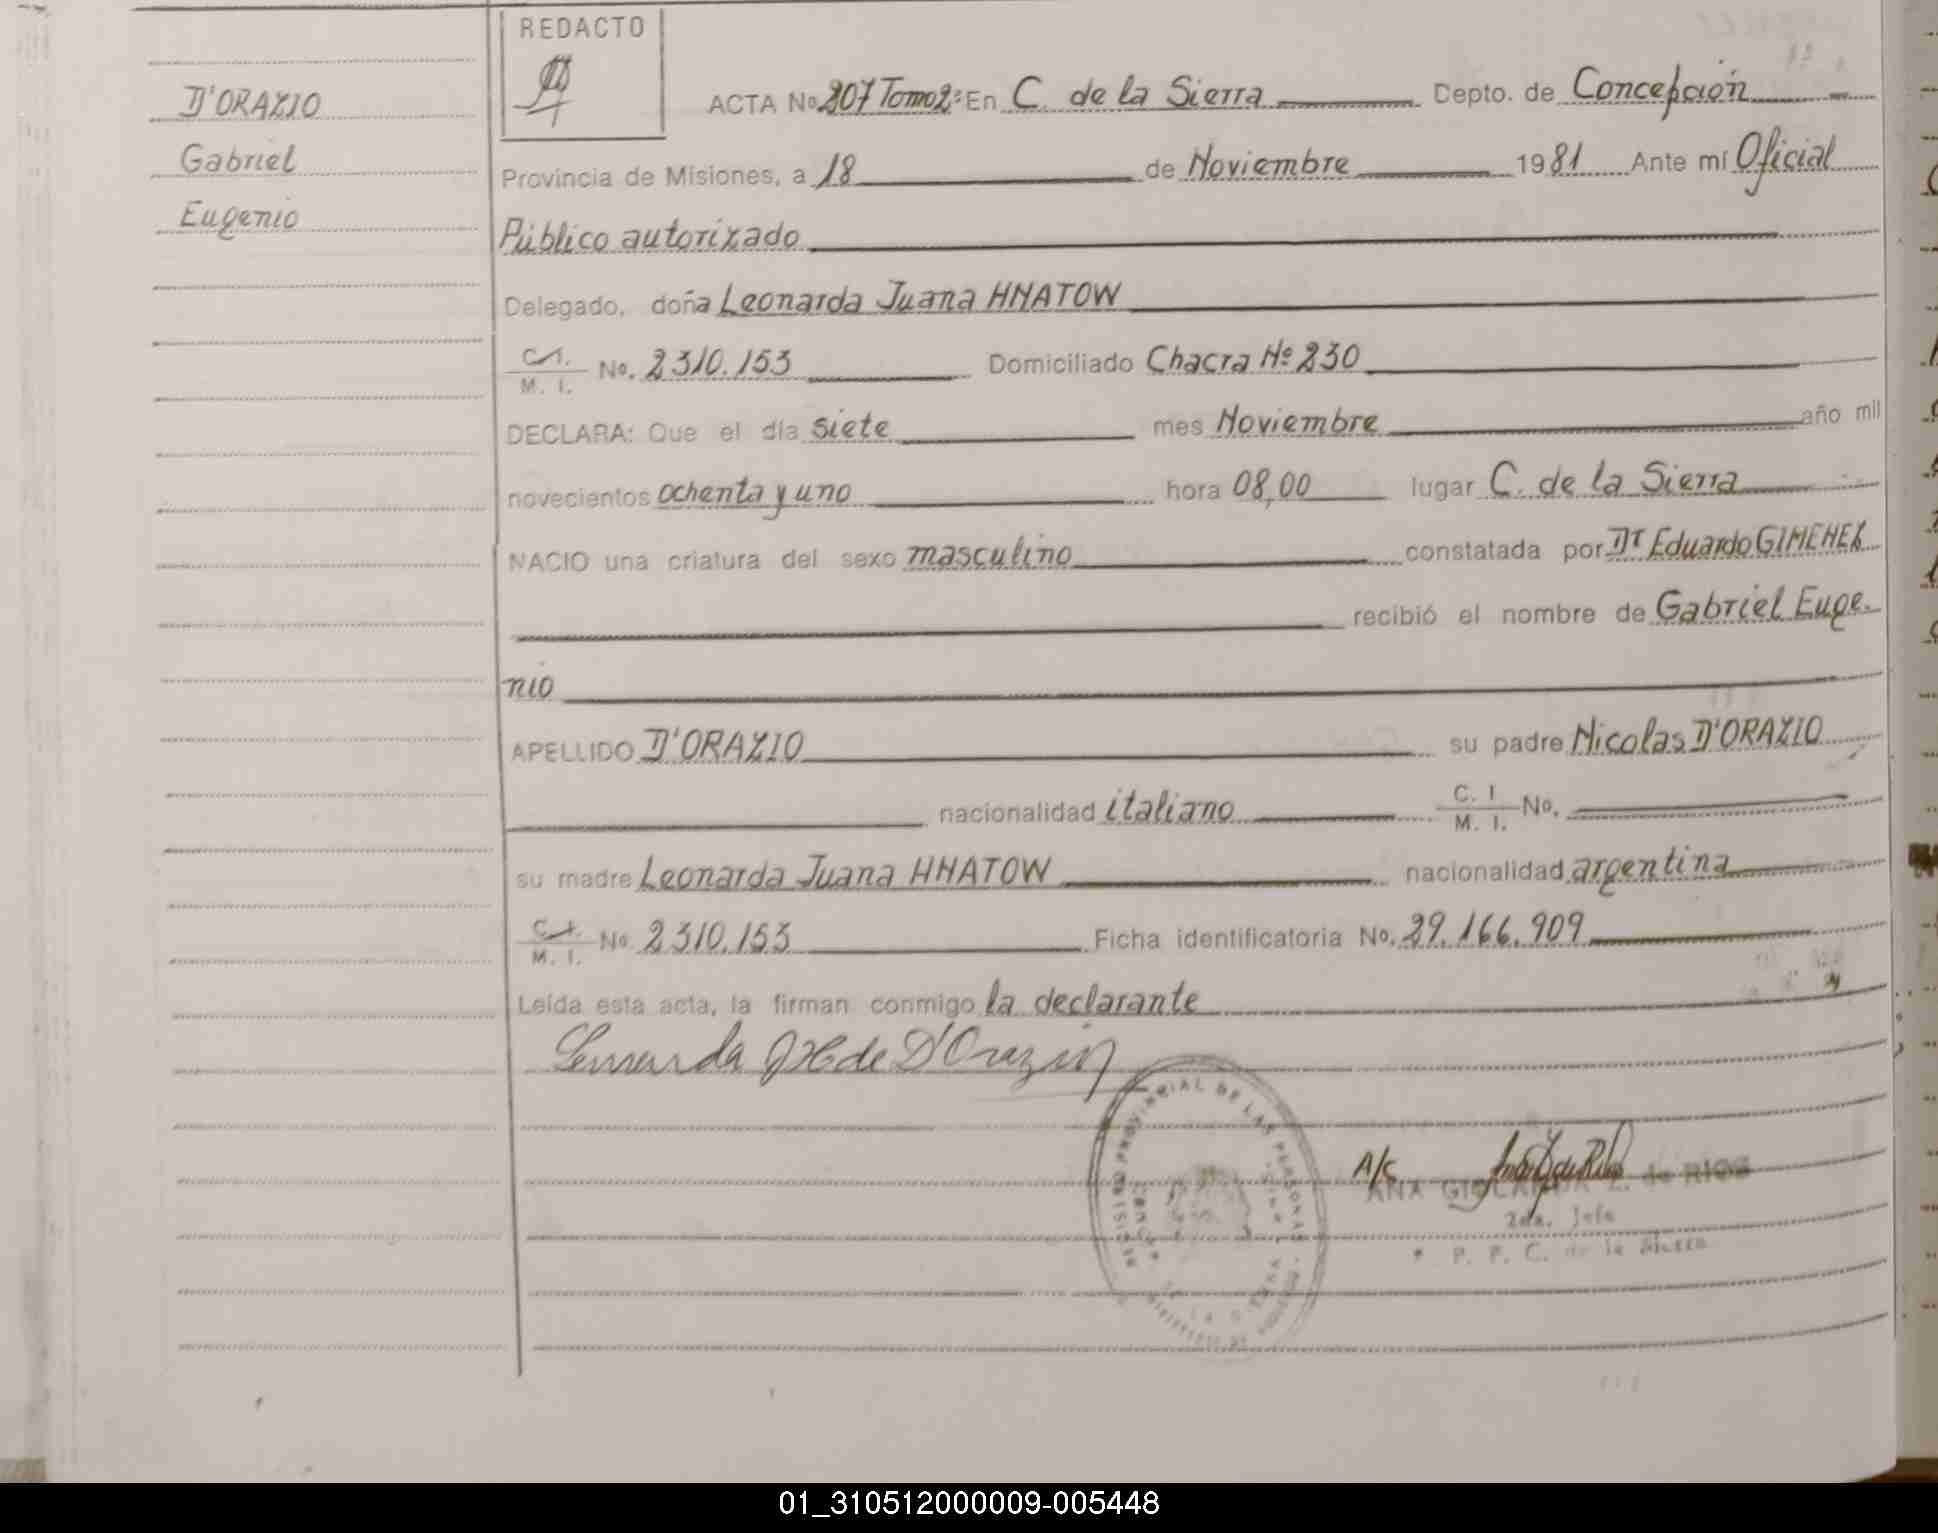 REDACTO
D'ORAZIO
Gabriel
Eugenio
ACTA No 207 Tomo 2º En C. de la Sierra Depto. de Concepción
Provincia de Misiones, a 18 de Noviembre 1981 Ante mí Oficial
Público autorizado
Delegado, doña Leonarda Juana HNATOW
C.I. M. I. No. 2310.153 Domiciliado Chacra Nº 230
DECLARA: Que el día siete mes Noviembre año mil
novecientos ochenta y uno hora 08,00 lugar C. de la Sierra
NACIO una criatura del sexo masculino constatada por Dr Eduardo GIMENEZ
recibió el nombre de Gabriel Euge-
nio
APELLIDO D'ORAZIO su padre Nicolas D'ORAZIO
nacionalidad italiano C. I M. I. No.
su madre Leonarda Juana HNATOW nacionalidad argentina
C.I. M. I. No 2310.153 Ficha identificatoria No. 29.166.909
Leída esta acta, la firman conmigo la declarante
Leonarda J H de D'Orazio
PROVINCIAL DE LAS PERSONAS
A/c
ANA de RIOS
2da. Jefe
P. P. C. de la Sierra
01_310512000009-005448